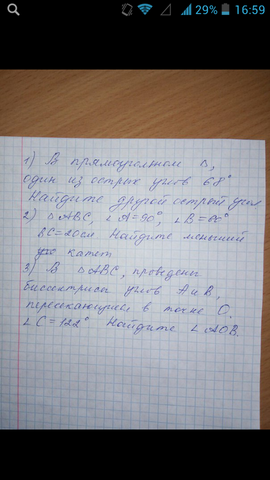 29% 16:59
1) В прямоугольном △,
один из острых углов 68°
Найдите другой острый угол
2) △ABC, ∠A=90°, ∠B=60°
BC=20см Найдите меньший
катет
3) В △ABC, проведены
биссектрисы углов A и B,
пересекающиеся в точке O.
∠C=122° Найдите ∠AOB.